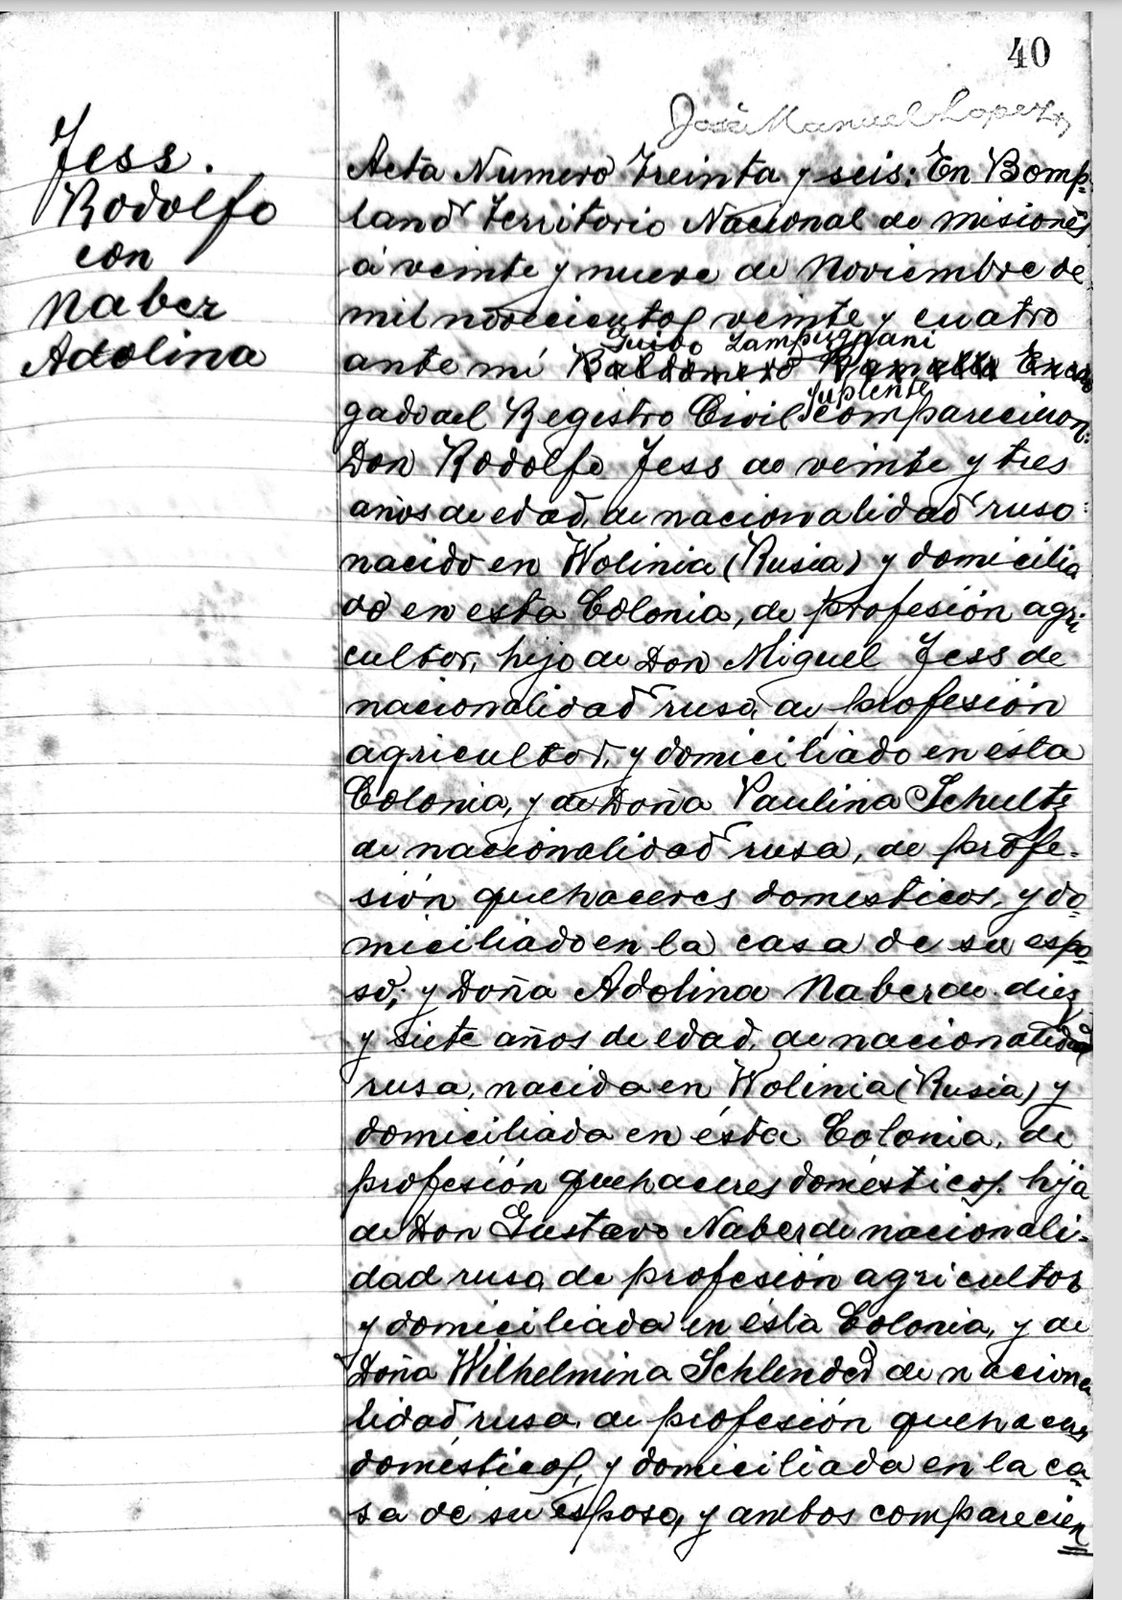 40
José Manuel Lopez
Jess.
Rodolfo
con
Naber
Adolina
Acta Numero Treinta y seis: En Bomp-
land Territorio Nacional de Misiones
á veinte y nueve de Noviembre de
mil novecientos veinte y cuatro
Guido Lampugnani
ante mí Baldomero Encar
suplente
gado del Registro Civil comparecieron:
Don Rodolfo Jess de veinte y tres
años de edad, de nacionalidad ruso
nacido en Wolinia (Rusia) y domicilia
do en esta Colonia, de profesión agri
cultor, hijo de Don Miguel Jess de
nacionalidad ruso, de profesión
agricultor, y domiciliado en ésta
Colonia, y de Doña Paulina Schultz
de nacionalidad rusa, de profe-
sión quehaceres domesticos, y do-
miciliado en la casa de su espo
so; y Doña Adolina Naber de diez
y siete años de edad, de nacionalidad
rusa, nacida en Wolinia (Rusia) y
domiciliada en ésta Colonia, de
profesión quehaceres domésticos, hija
de Don Gustavo Naber de nacionali-
dad ruso, de profesión agricultor
y domiciliada en ésta Colonia, y de
Doña Wilhelmina Schlender de naciona
lidad rusa, de profesión quehaceres
domésticos, y domiciliada en la ca-
sa de su esposo, y ambos comparecien